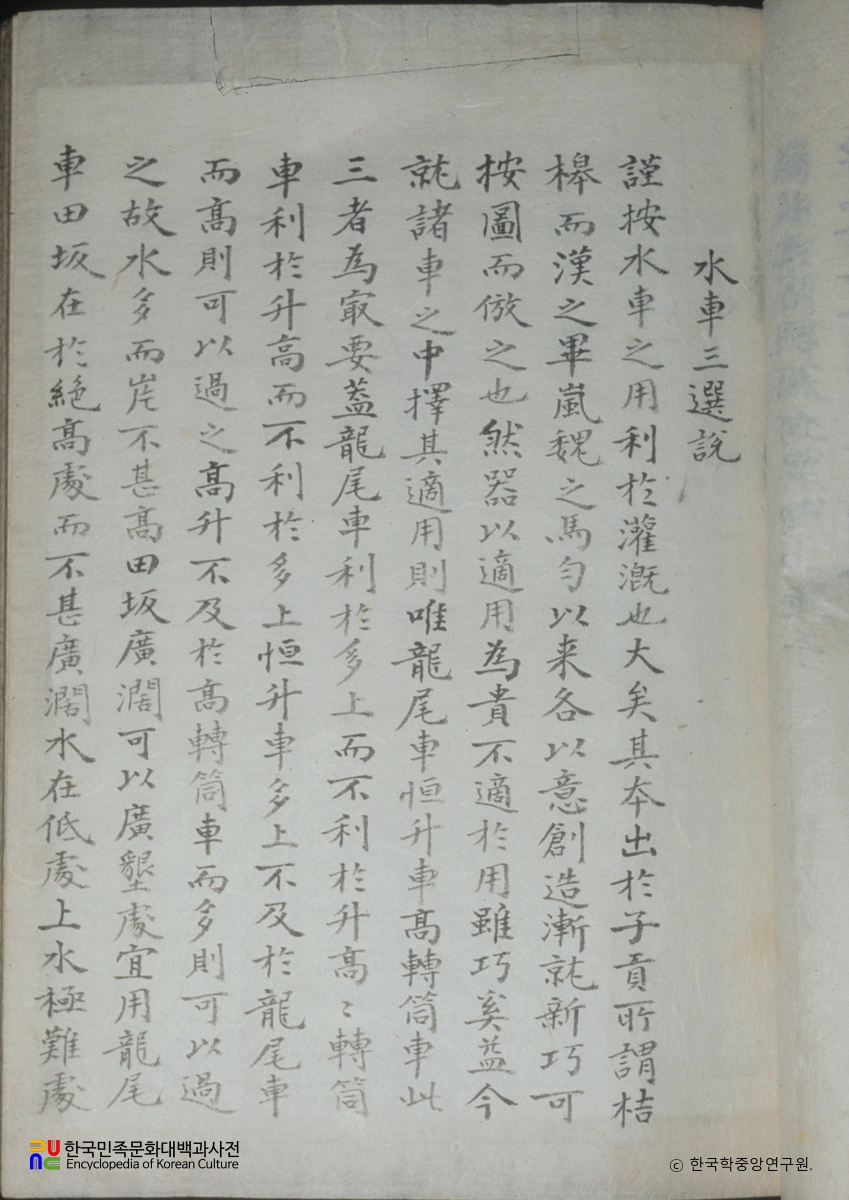 水車三選說
謹按水車之用利於灌漑也大矣其夲出於子貢所謂桔
槹而漢之畢嵐魏之馬匀以来各以意創造漸就新巧可
按圖而倣之也然器以適用為貴不適於用雖巧奚益今
就諸車之中擇其適用則唯龍尾車恒升車高轉筒車此
三者為㝡要盖龍尾車利於多上而不利於升高〻轉筒
車利於升高而不利於多上恒升車多上不及於龍尾車
而高則可以過之高升不及於高轉筒車而多則可以過
之故水多而岸不甚高田坂廣濶可以廣墾處宜用龍尾
車田坂在於絶高處而不甚廣濶水在低處上水極難處
한국민족문화대백과사전
Encyclopedia of Korean Culture
© 한국학중앙연구원.